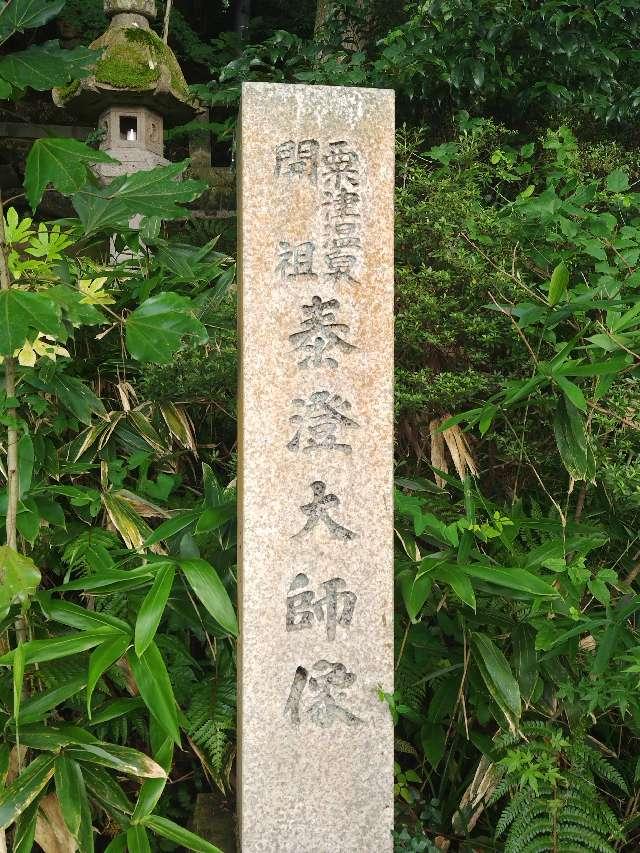 粟津温泉
開祖
泰澄大師像